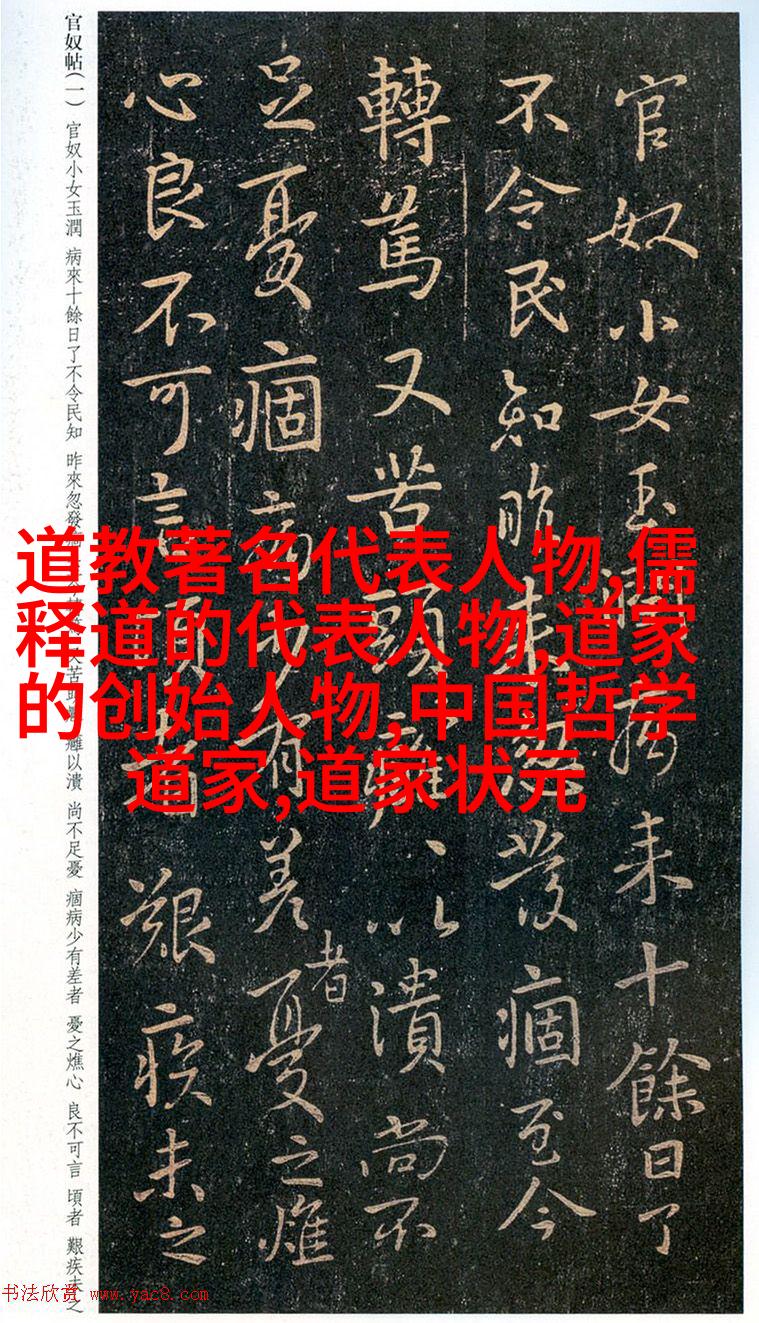 官奴小女玉潤病来十餘日了
不令民知昨来忽發痼至今
轉篤又苦頭癰以潰尚不
足憂痼病少有差者憂之燋
心良不可言頃者艱疾未之
官奴帖(一) 官奴小女玉潤 病來十餘日了不令民知 昨來忽發 苦頭 癰以潰 尚不足憂 痼病少有差者 憂之燋心 良不可言 頃者 艱疾未之
道教著名代表人物,儒
释道的代表人物,道家
的创始人物,中国哲学
道家,道家状元
书法欣赏 www.yac8.com